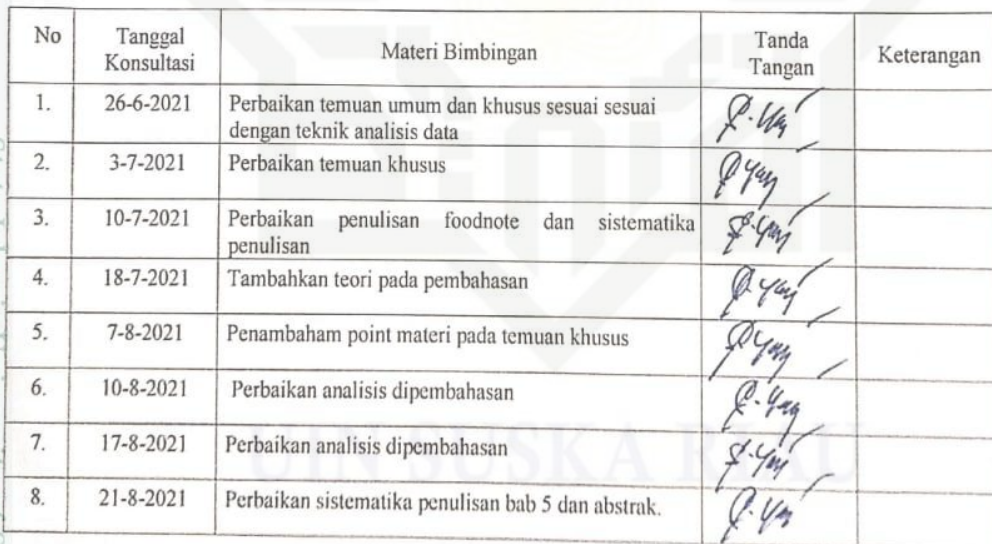 No Tanggal Konsultasi Materi Bimbingan Tanda Tangan Keterangan
1. 26-6-2021 Perbaikan temuan umum dan khusus sesuai sesuai
dengan teknik analisis data
2. 3-7-2021 Perbaikan temuan khusus
3. 10-7-2021 Perbaikan penulisan foodnote dan sistematika
penulisan
4. 18-7-2021 Tambahkan teori pada pembahasan
5. 7-8-2021 Penambaham point materi pada temuan khusus
6. 10-8-2021 Perbaikan analisis dipembahasan
7. 17-8-2021 Perbaikan analisis dipembahasan
UIN SUSKA RIAU
8. 21-8-2021 Perbaikan sistematika penulisan bab 5 dan abstrak.